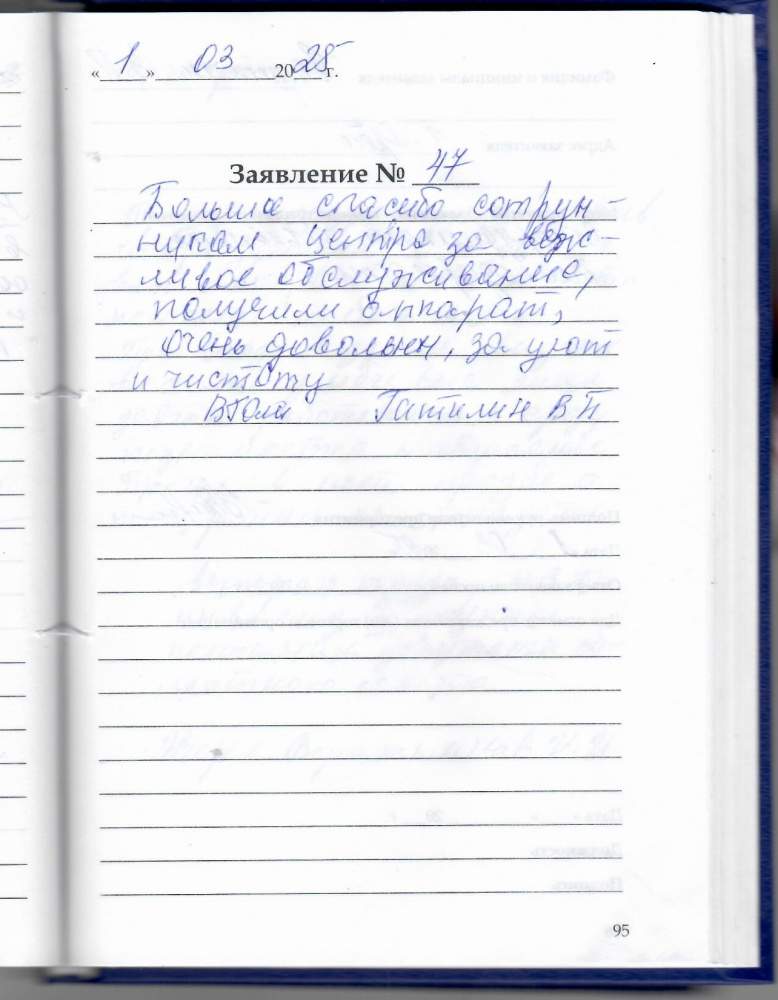 «1» 03 2025 г.
Заявление № 47
Большое спасибо сотруд-
никам центра за веж-
ливое обслуживание,
получили аппарат,
очень довольны, за уют
и чистоту
Гатилин В П
95